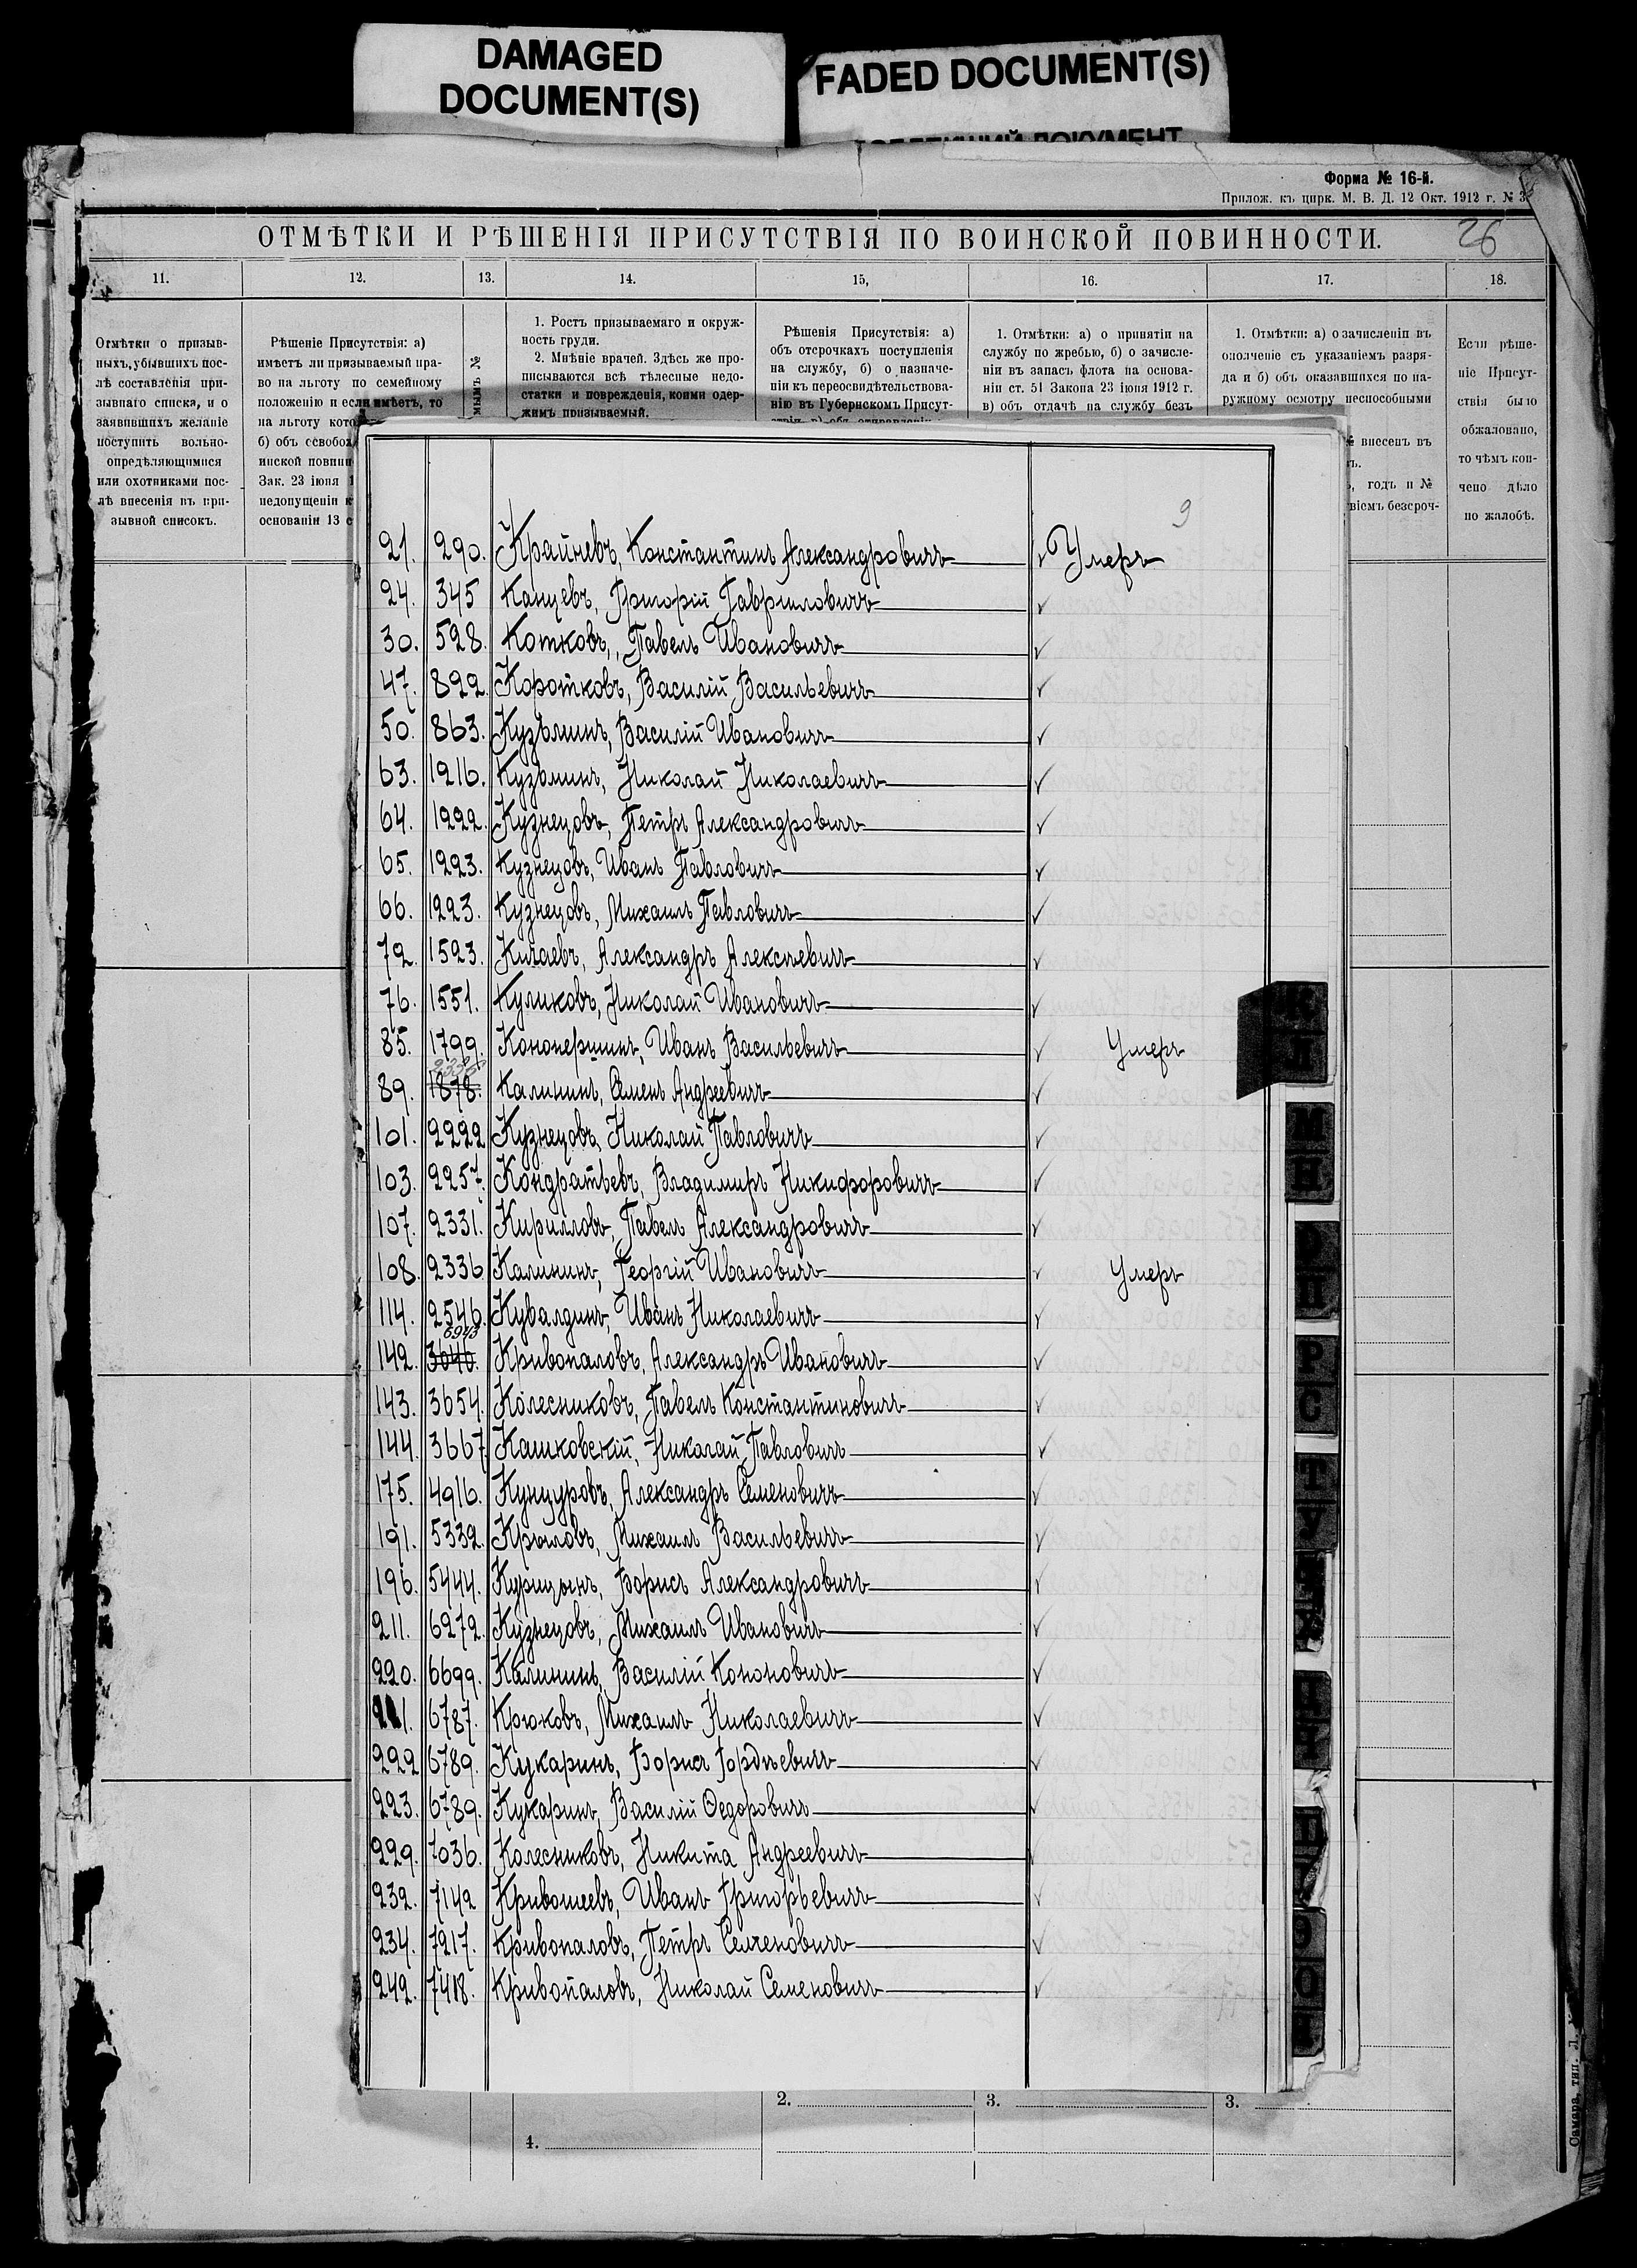 DAMAGED
DOCUMENT(S)
FADED DOCUMENT(S)
Форма № 16-й.
Прилож. къ цирк. М. В. Д. 12 Окт. 1912 г. № 3
ОТМѢТКИ И РѢШЕНІЯ ПРИСУТСТВІЯ ПО ВОИНСКОЙ ПОВИННОСТИ.
26
11. 12. 13. 14. 15, 16. 17. 18.
Отмѣтки о призыв-
ныхъ, убывшихъ пос-
лѣ составленія при-
зывнаго списка, и о
заявившихъ желаніе
поступить вольно-
опредѣляющимися
или охотниками пос-
лѣ внесенія въ при-
зывной списокъ.
Рѣшеніе Присутствія: а)
имѣетъ ли призываемый пра-
во на льготу по семейному
положенію и если имѣетъ, то
на льготу кото
б) объ освобож
инской повинн
Зак. 23 іюня 1
недопущеніи к
основаніи 13 с
№
1. Ростъ призываемаго и окруж-
ность груди.
2. Мнѣніе врачей. Здѣсь же про-
писываются всѣ тѣлесные недо-
статки и поврежденія, коими одер-
жимъ призываемый.
Рѣшенія Присутствія: а)
объ отсрочкахъ поступленія
на службу, б) о назначе-
ніи къ переосвидѣтельствова-
нію въ Губернскомъ Присут-
1. Отмѣтки: а) о принятіи на
службу по жребью, б) о зачисле-
ніи въ запасъ флота на основа-
ніи ст. 51 Закона 23 іюня 1912 г.
в) объ отдачѣ на службу безъ
1. Отмѣтки: а) о зачисленіи въ
ополченіе съ указаніемъ разря-
да и б) объ оказавшихся по на-
ружному осмотру неспособными
№ внесенъ въ
ъ.
ь, годъ и №
віемъ безсроч-
Если рѣше-
ніе Присут-
ствія было
обжаловано,
то чѣмъ кон-
чено дѣло
по жалобѣ.
9
21. 290. Крайневъ, Константинъ Александровичъ Умеръ
24. 345 Канцевъ, Григорій Гавриловичъ
30. 528. Котковъ, Павелъ Ивановичъ
47. 822. Коротковъ, Василій Васильевичъ
50. 863. Кузьминъ, Василій Ивановичъ
63. 1216. Кузьминъ, Николай Николаевичъ
64. 1222. Кузнецовъ, Петръ Александровичъ
65. 1223. Кузнецовъ, Иванъ Павловичъ
66. 1223. Кузнецовъ, Михаилъ Павловичъ
72. 1523. Кичаевъ, Александръ Алексѣевичъ
76. 1551. Куликовъ, Николай Ивановичъ
85. 1799. Иванъ Васильевичъ Умеръ
2336
89. 1878. Калининъ, Семенъ Андреевичъ
101. 2222 Кузнецовъ, Николай Павловичъ
103. 2257. Кондратьевъ, Владимиръ Никифоровичъ
107. 2331. Кирилловъ, Павелъ Александровичъ
108. 2336 Калининъ, Георгій Ивановичъ Умеръ
114. 2546. Кувалдинъ, Иванъ Николаевичъ
6943
142. 3640. Кривопаловъ, Александръ Ивановичъ
143. 3654. Колесниковъ, Павелъ Константиновичъ
144. 3667 Кашковскій, Николай Павловичъ
175. 4916. Кунцуровъ, Александръ Семеновичъ
191. 5332. Крыловъ, Михаилъ Васильевичъ
196. 5444. Курицынъ, Борисъ Александровичъ
211. 6272. Кузнецовъ, Михаилъ Ивановичъ
220. 6699. Калининъ, Василій Кононовичъ
221. 6787. Крюковъ, Михаилъ Николаевичъ
222 6789. Кукаринъ, Борисъ Гордѣевичъ
223. 6789. Кукаринъ, Василій Федоровичъ
229. 7036. Колесниковъ, Никита Андреевичъ
232. 7142 Кривошеевъ, Иванъ Григорьевичъ
234. 7217. Кривопаловъ, Петръ Семеновичъ
242. 7418. Кривопаловъ, Николай Семеновичъ
2. 3. 3.
4.
Самара, тип. Л.